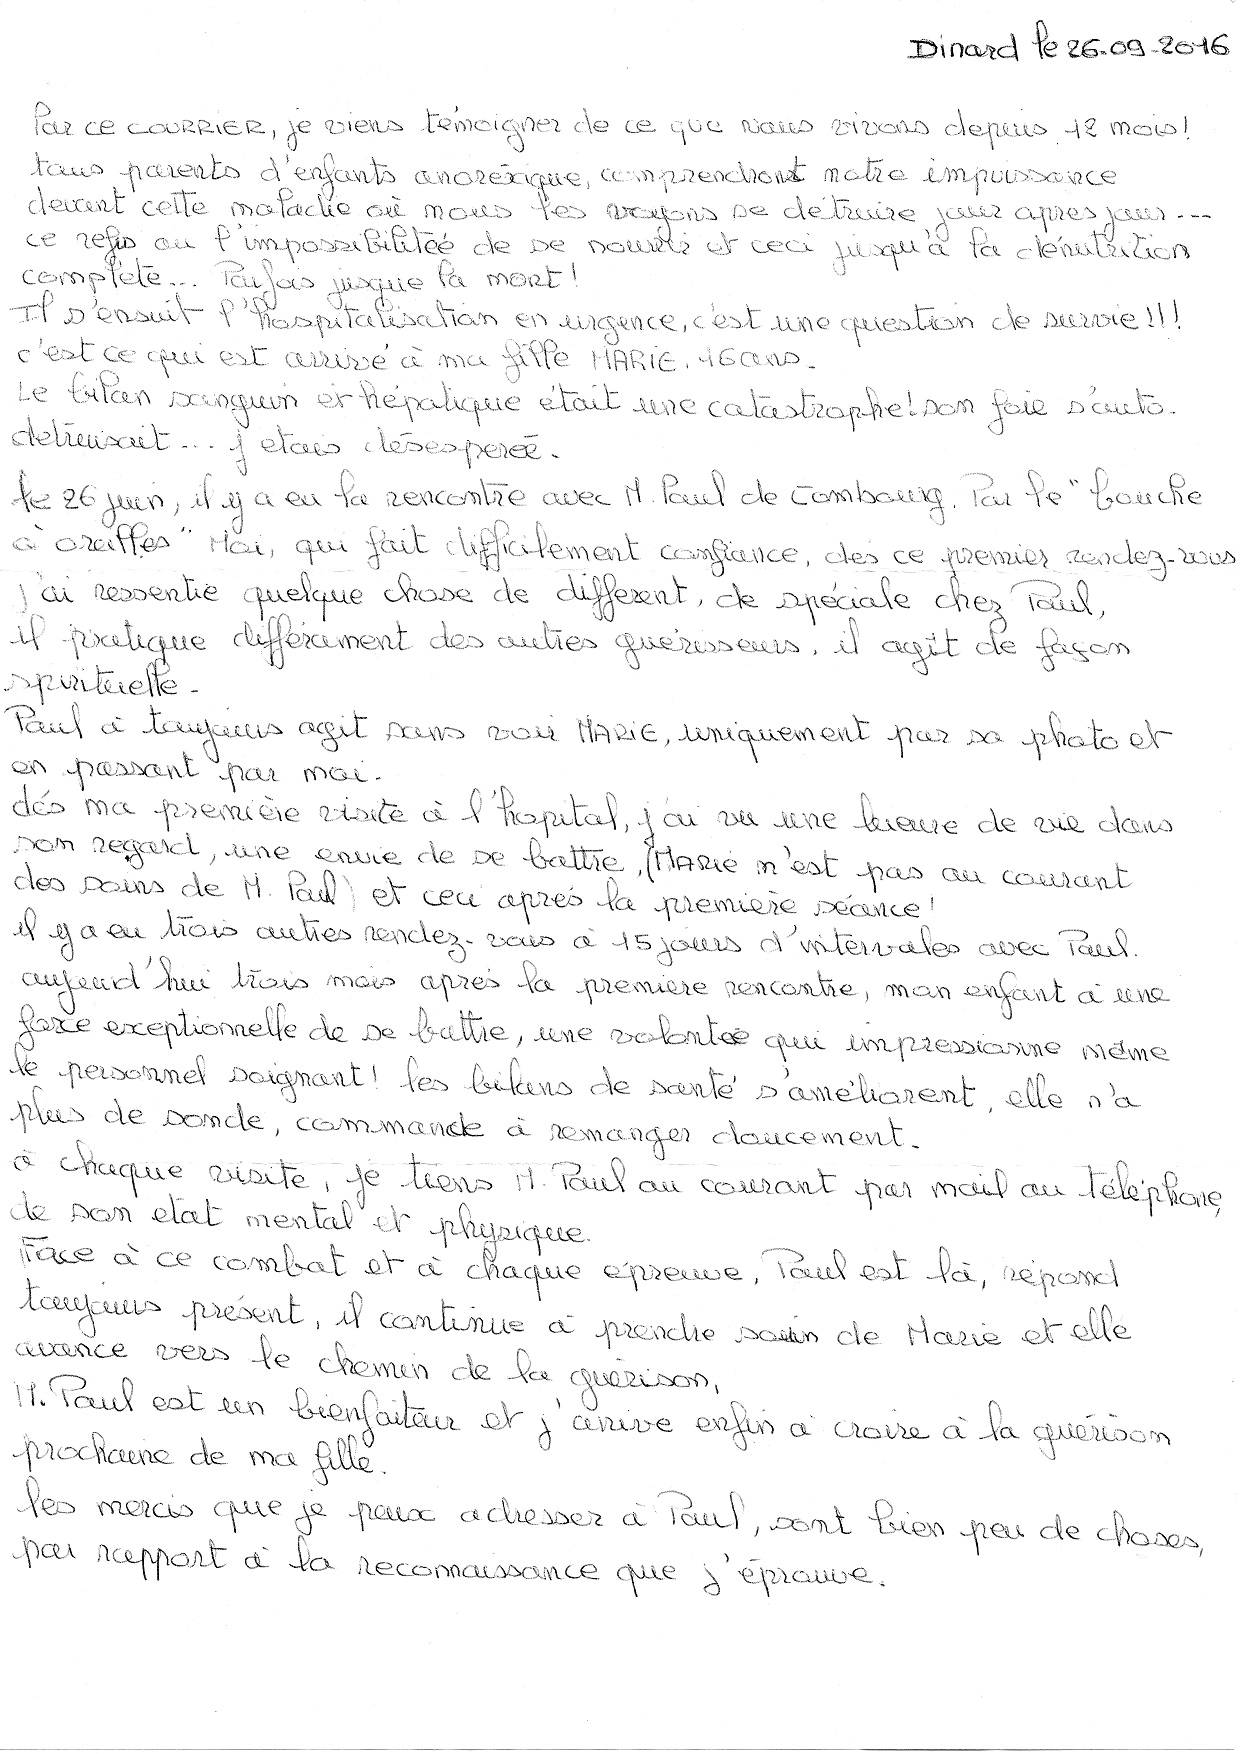 Dinard le 26.09.2016
Par ce COURRIER, je viens témoigner de ce que nous vivons depuis 12 mois!
tous parents d'enfants anorexique, comprendront notre impuissance
devant cette maladie où nous les voyons se détruire jour après jour...
ce refus ou l'impossibilitée de se nourrir et ceci jusqu'à la dénutrition
complète... Parfois jusque la mort!
Il s'ensuit l'hospitalisation en urgence, c'est une question de survie!!!
c'est ce qui est arrivé à ma fille MARIE. 16 ans.
Le bilan sanguin et hépatique était une catastrophe! son foie s'auto.
detruisait... j etais désesperée.
le 26 juin, il y a eu la rencontre avec M. Paul de Combourg. Par le "bouche
à oreilles" Moi, qui fait difficilement confiance, dès ce premier rendez-vous
j'ai ressentie quelque chose de différent, de spéciale chez Paul,
il pratique différament des autres guérisseurs, il agit de façon
spirituelle.
Paul à toujours agit sans voir MARIE, uniquement par sa photo et
en passant par moi.
dés ma première visite à l'hopital, j'ai vu une lueure de vie dans
son regard, une envie de se battre, (MARIE n'est pas au courant
des soins de M. Paul) et ceci aprés la première séance!
il y a eu trois autres rendez-vous à 15 jours d'intervales avec Paul.
aujourd'hui trois mois aprés la première rencontre, mon enfant à une
force exceptionnelle de se battre, une volontée qui impressionne même
le personnel soignant! les bilans de santé s'améliorent, elle n'a
plus de sonde, commande à remanger doucement.
à chaque visite, je tiens M. Paul au courant par mail ou téléphone,
de son état mental et physique.
Face à ce combat et à chaque épreuve, Paul est là, répond
toujours présent, il continue à prendre soin de Marie et elle
avance vers le chemin de la guérison,
M. Paul est un bienfaiteur et j'arrive enfin à croire à la guérison
prochaine de ma fille.
les mercis que je peux adresser à Paul, sont bien peu de choses,
par rapport à la reconaissance que j'éprouve.